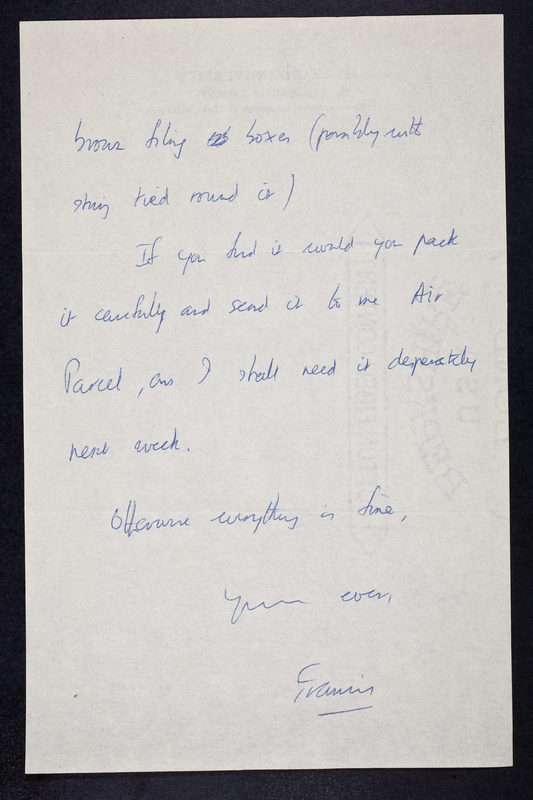 brown filing boxes (possibly with
string tied round it)
If you find it would you pack
it carefully and send it to me Air
Parcel, as I shall need it desperately
next week.
Otherwise everything is fine,
Yours ever,
Francis